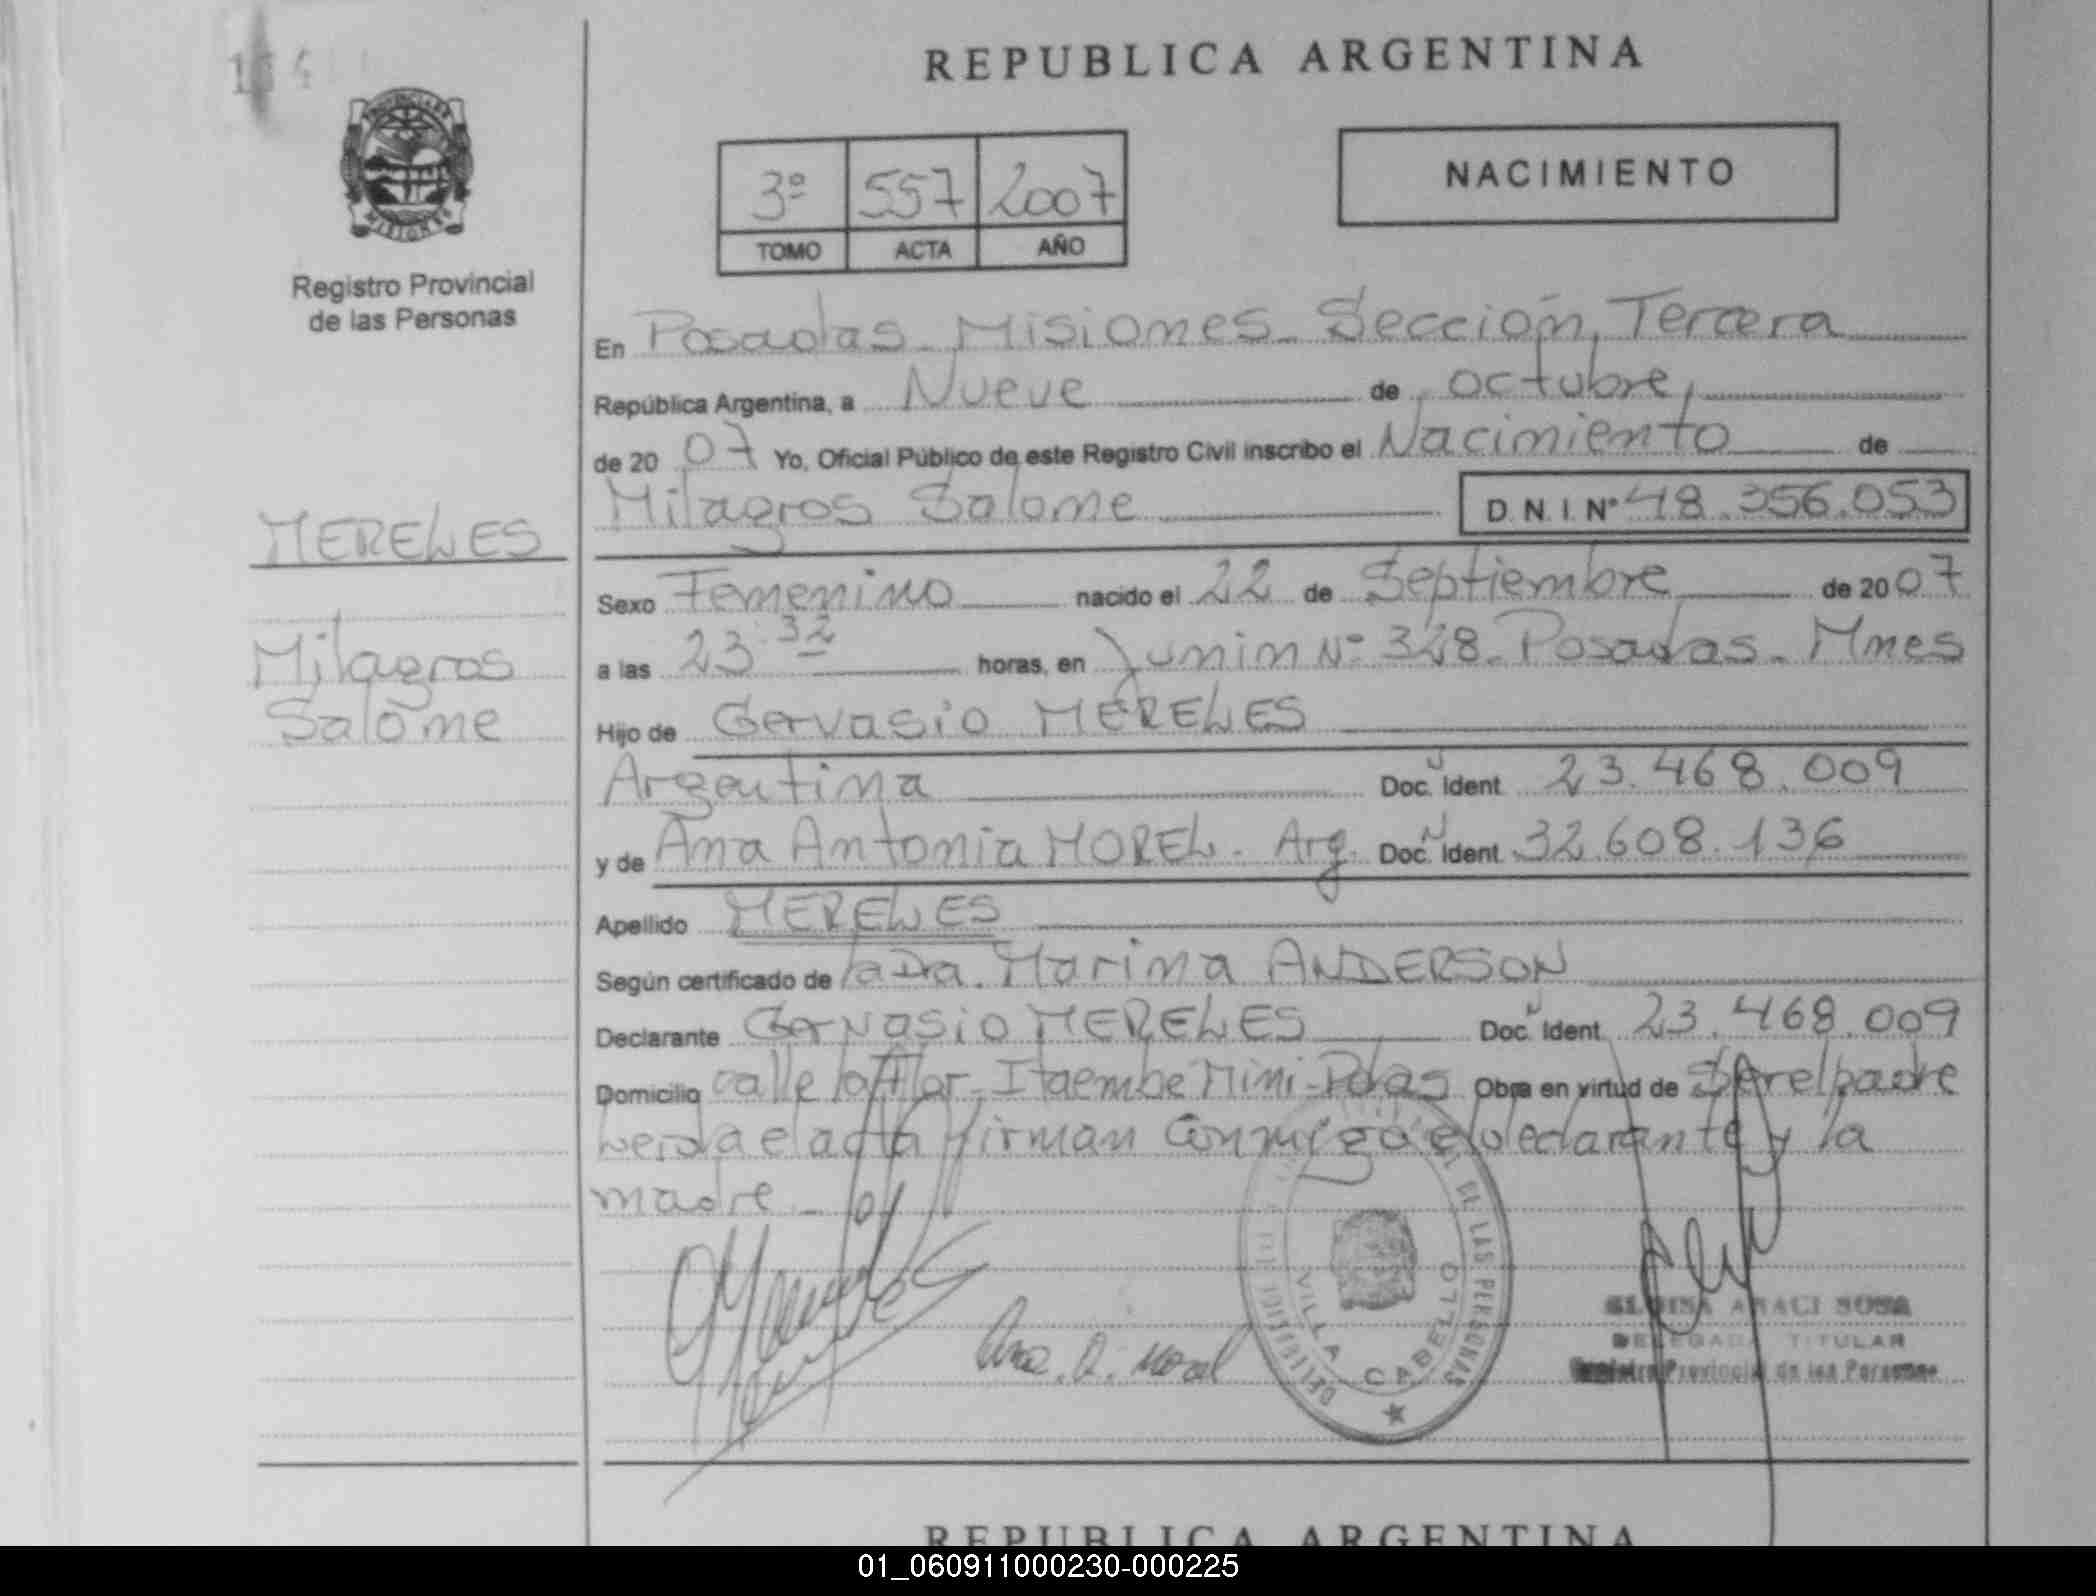 REPUBLICA ARGENTINA
3º 557 2007
TOMO ACTA AÑO
NACIMIENTO
Registro Provincial
de las Personas
MERELES
Milagros
Salome
En Posadas - Misiones - Sección, Tercera
República Argentina, a Nueve de octubre,
de 20 07 Yo, Oficial Público de este Registro Civil inscribo el Nacimiento de
Milagros Salome D.N.I. Nº 48.356.053
Sexo Femenino nacido el 22 de Septiembre de 20 07
a las 23:32 horas, en Junin Nº 328 - Posadas - Mnes
Hijo de Gervasio MERELES
Argentina Doc. Ident. 23.468.009
y de Ana Antonia MOREL - Arg. Doc. Ident. 32.608.136
Apellido MERELES
Según certificado de la Dra. Marina ANDERSON
Declarante Gervasio MERELES Doc. Ident. 23.468.009
Domicilio calle la Flor - Itaembe Mini - Pdas Obra en virtud de Ser el padre
Leida el acta firman Conmigo el declarante y la
madre -
Ana. A. Morel
DE LAS PERSONAS
VILLA CABELLO
ARACI SOSA
DELEGADA TITULAR
Registro Provincial de las Personas
REPUBLICA ARGENTINA
01_060911000230-000225